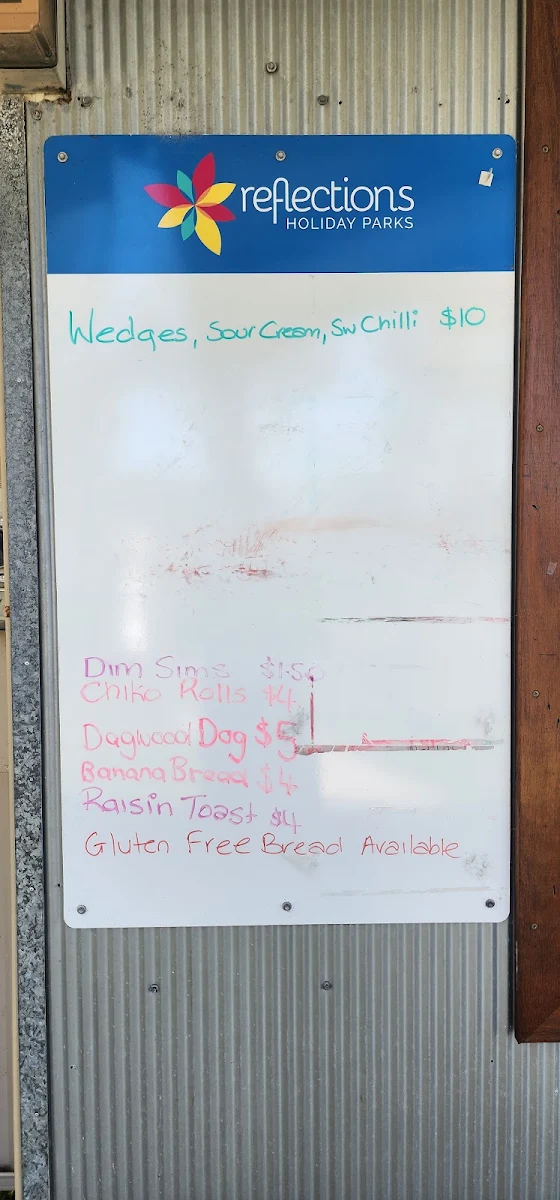 reflections
HOLIDAY PARKS
Wedges, Sour Cream, Sw Chilli $10
Dim Sims $1.50
Chiko Rolls $4
Dagwood Dog $5
Banana Bread $4
Raisin Toast $4
Gluten Free Bread Available